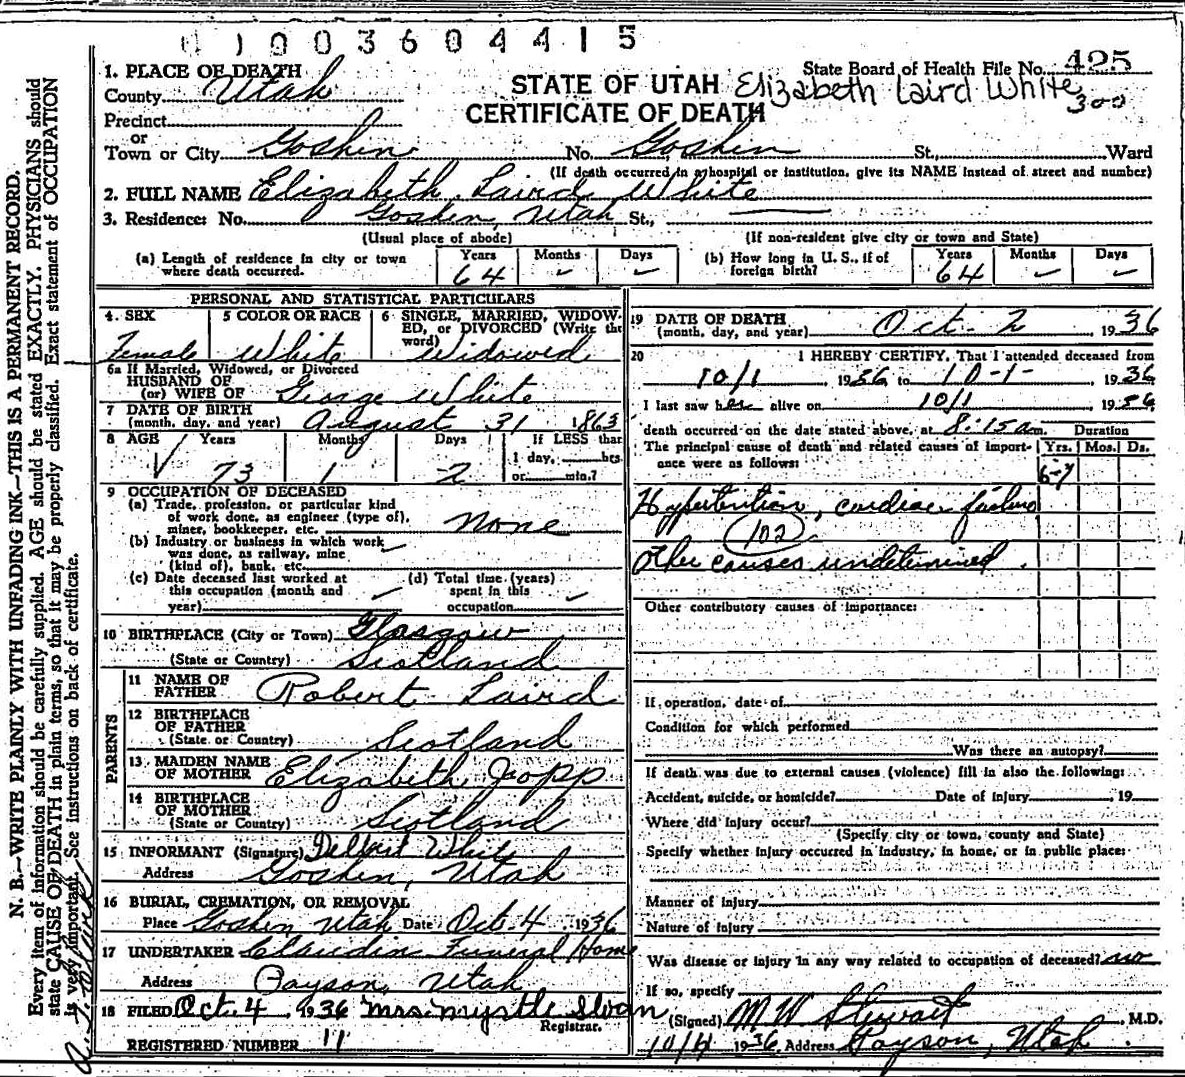 1003604415
State Board of Health File No. 425
1. PLACE OF DEATH
County Utah
STATE OF UTAH Elizabeth Laird White
CERTIFICATE OF DEATH 300
Precinct
or
Town or City Goshen No. Goshen St., Ward
(If death occurred in a hospital or institution, give its NAME instead of street and number)
2. FULL NAME Elizabeth Laird White
3. Residence: No. Goshen, Utah St.,
(Usual place of abode) (If non-resident give city or town and State)
(a) Length of residence in city or town where death occurred. Years 64 Months Days
(b) How long in U. S., if of foreign birth? Years 64 Months Days
PERSONAL AND STATISTICAL PARTICULARS
4. SEX Female
5 COLOR OR RACE White
6 SINGLE, MARRIED, WIDOWED, or DIVORCED (Write the word) Widowed
6a If Married, Widowed, or Divorced
HUSBAND OF
(or) WIFE OF George White
7 DATE OF BIRTH
(month, day, and year) August 31 1863
8 AGE Years 73 Months 1 Days 2 If LESS than 1 day, hrs. or min.?
9 OCCUPATION OF DECEASED
(a) Trade, profession, or particular kind
of work done, as engineer (type of),
miner, bookkeeper, etc. None
(b) Industry or business in which work
was done, as railway, mine
(kind of), bank, etc.
(c) Date deceased last worked at
this occupation (month and
year)
(d) Total time (years)
spent in this
occupation
10 BIRTHPLACE (City or Town) Glasgow
(State or Country) Scotland
PARENTS
11 NAME OF
FATHER Robert Laird
12 BIRTHPLACE
OF FATHER
(State or Country) Scotland
13 MAIDEN NAME
OF MOTHER Elizabeth Jopp
14 BIRTHPLACE
OF MOTHER
(State or Country) Scotland
15 INFORMANT (Signature) Delbert White
Address Goshen, Utah
16 BURIAL, CREMATION, OR REMOVAL
Place Goshen Utah Date Oct. 4 1936
17 UNDERTAKER Claudin Funeral Home
Address Payson, Utah
18 FILED Oct. 4, 1936 Mrs. Myrtle Sloan
Registrar.
REGISTERED NUMBER 11
19 DATE OF DEATH
(month, day, and year) Oct. 2 1936
20 I HEREBY CERTIFY, That I attended deceased from
10/1, 1936 to 10-1- 1936
I last saw her alive on 10/1 1936
death occurred on the date stated above, at 8:15 am. Duration
The principal cause of death and related causes of importance were as follows: Yrs. Mos. Ds.
6-7
Hypertention, cardiac failure
102
Other causes undetermined.
Other contributory causes of importance:
If operation, date of
Condition for which performed
Was there an autopsy?
If death was due to external causes (violence) fill in also the following:
Accident, suicide, or homicide? Date of injury, 19
Where did injury occur?
(Specify city or town, county and State)
Specify whether injury occurred in industry, in home, or in public place:
Manner of injury
Nature of injury
Was disease or injury in any way related to occupation of deceased? no
If so, specify
(Signed) M W Stewart M.D.
10/4 1936 Address Payson, Utah.
N. B.—WRITE PLAINLY WITH UNFADING INK—THIS IS A PERMANENT RECORD.
Every item of information should be carefully supplied. AGE should be stated EXACTLY. PHYSICIANS should
state CAUSE OF DEATH in plain terms, so that it may be properly classified. Exact statement of OCCUPATION
is very important. See instructions on back of certificate.